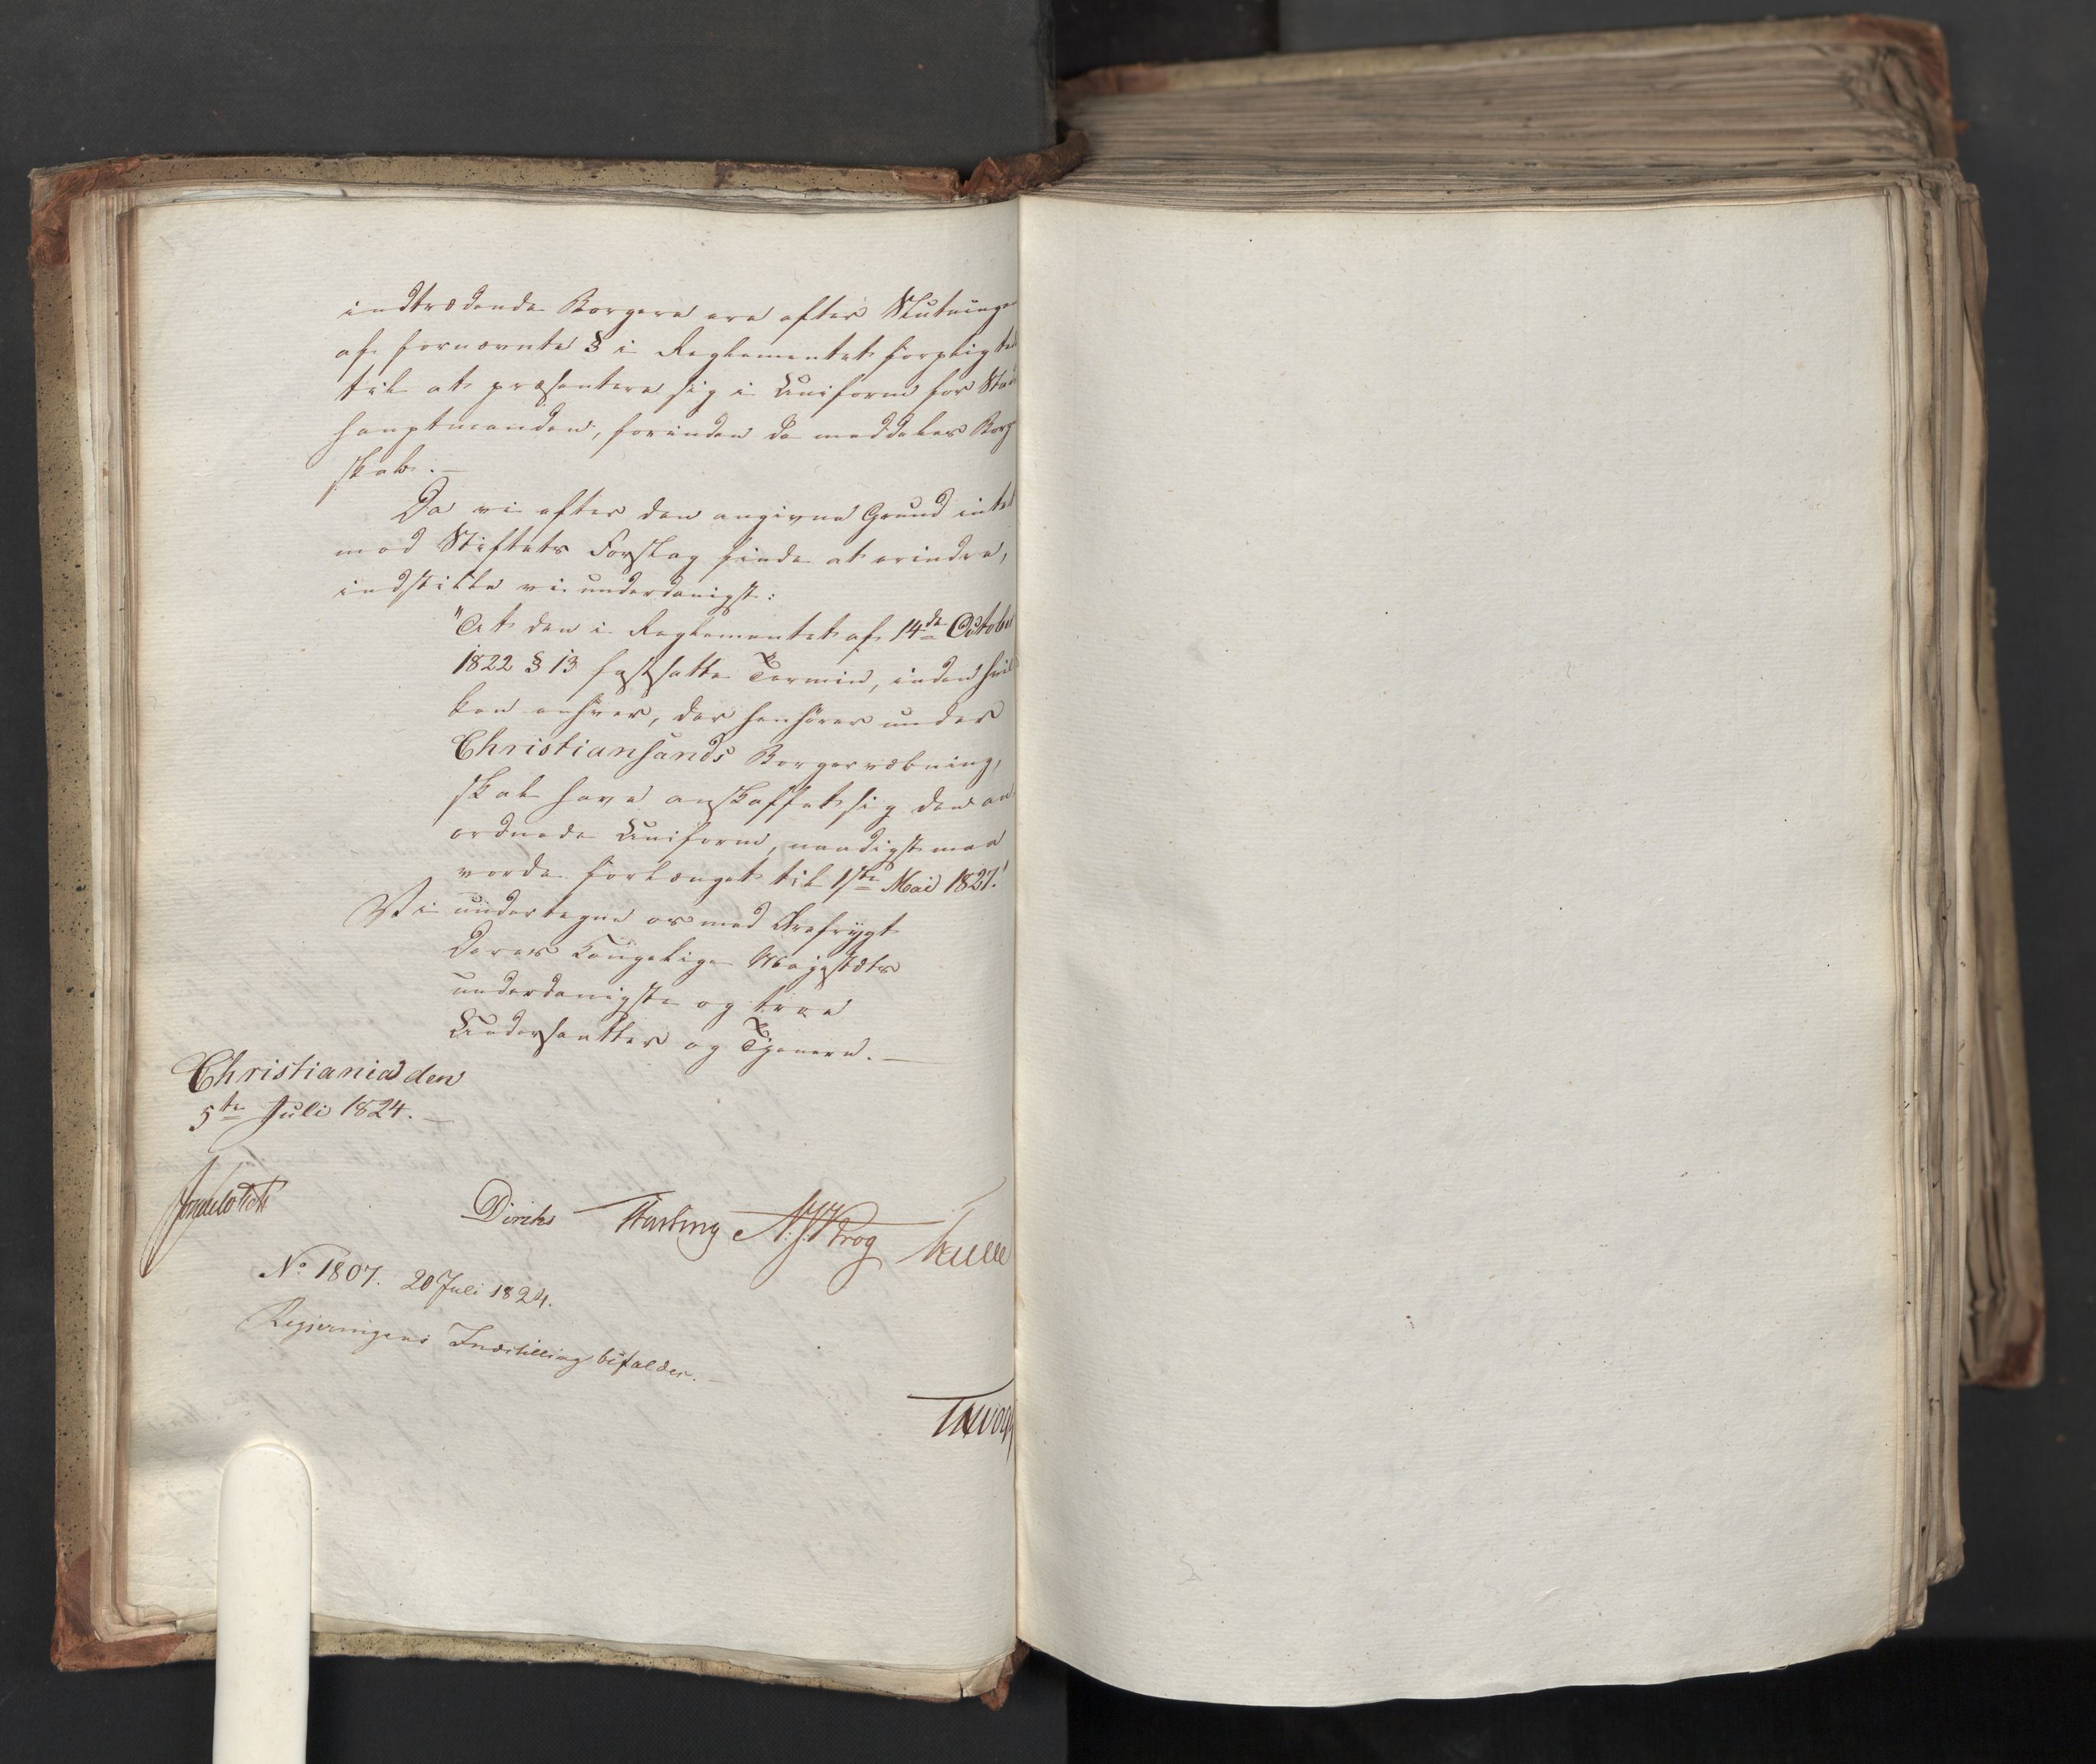 indtrædende Borgere ere efter Slutningen
af fornævnte § i Reglementet forpligtede
til at præsentere sig i Uniform for Stads
hauptmanden, forinden de meddeles Borger
skab.—
Da vi efter den angivne Grund intet
mod Stiftets Forslag finde at erindre,
indstille vi underdanigst:
"At den i Reglementet af 14de October
1822 § 13 fastsatte Termin, inden hvil
ken enhver, der henhører under
Christiansands Borgervæbning,
skal have anskaffet sig den an
ordnede Uniform, naadigst maa
vorde forlænget til 1ste Mai 1827."
Vi undertegne os med Ærefrygt
Deres Kongelige Majestæts
underdanigste og troe
Undersaatter og Tjenere.—
Christiania den
5te Juli 1824.—
Diriks N. J. Krog
No 1807. 20 Juli 1824.
Regjeringens Indstilling bifaldes.—